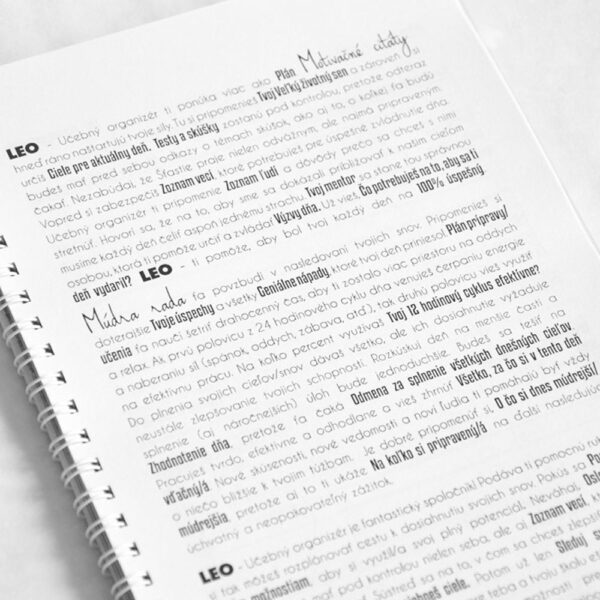 LEO - Učebný organizér ti ponúka viac ako Plán Motivačné citáty
hneď ráno naštartujú tvoje sily. Tu si pripomenieš Tvoj Veľký životný sen a zároveň si
určíš Ciele pre aktuálny deň. Testy a skúšky zostanú pod kontrolou, pretože odteraz
budeš mať pred sebou odkazy o témach skúšok, ako aj to, o koľkej ťa budú
čakať. Nezabúdaj, že Šťastie praje nielen odvážnym, ale najmä pripraveným.
Vopred si zabezpečíš Zoznam vecí, ktoré potrebuješ pre úspešné zvládnutie dňa.
Učebný organizér ti pripomenie Zoznam ľudí a dôvody prečo sa chceš s nimi
stretnúť. Hovorí sa, že na to, aby sme sa dokázali približovať k našim cieľom
musíme každý deň čeliť aspoň jednému strachu. Tvoj mentor sa stane tou správnou
osobou, ktorá ti pomôže určiť a zvládať Výzvy dňa. Už vieš, Čo potrebuješ na to, aby sa ti
deň vydaril? LEO - ti pomôže, aby bol tvoj každý deň na 100% úspešný.
Múdra rada ťa povzbudí v nasledovaní tvojich snov. Pripomenieš si
doterajšie Tvoje úspechy a všetky Geniálne nápady, ktoré tvoj deň priniesol. Plán prípravy/
učenia ťa naučí šetriť drahocenný čas, aby ti zostalo viac priestoru na oddych
a relax. Ak prvú polovicu z 24 hodinového cyklu dňa venuješ čerpaniu energie
a naberaniu síl (spánok, oddych, zábava, atď.), tak druhú polovicu vieš využiť
na efektívnu prácu. Na koľko percent využívaš Tvoj 12 hodinový cyklus efektívne?
Do plnenia svojich cieľov/snov dávaš všetko, ale ich dosiahnutie vyžaduje
neustále zlepšovanie tvojich schopností. Rozkúskuj deň na menšie časti a
splnenie (aj náročnejších) úloh bude jednoduchšie. Budeš sa tešiť na
Zhodnotenie dňa, pretože ťa čaká Odmena za splnenie všetkých dnešných cieľov.
Pracuješ tvrdo, efektívne a odhodlane a vieš zhrnúť Všetko, za čo si v tento deň
vďačný/á. Nové skúsenosti, nové vedomosti a noví ľudia ti pomáhajú byť vždy
o niečo bližšie k tvojim túžbam. Je dobré pripomenúť si, O čo si dnes múdrejší/
múdrejšia, pretože aj to ti ukáže, Na koľko si pripravený/á na ďalší nasledujúci
úchvatný a neopakovateľný zážitok.
LEO - Učebný organizér je fantastický spoločník! Podáva ti pomocnú ruku
si tak môžeš rozplánovať cestu k dosiahnutiu svojich snov. Pokús sa
možnostiam, aby si využil/a svoj plný potenciál. Neváhaj,
mať pod kontrolou nielen seba, ale aj Zoznam vecí, ktoré
Sústreď sa na to, v čom sa chceš zlepšiť
ciele. Potom už len Sleduj